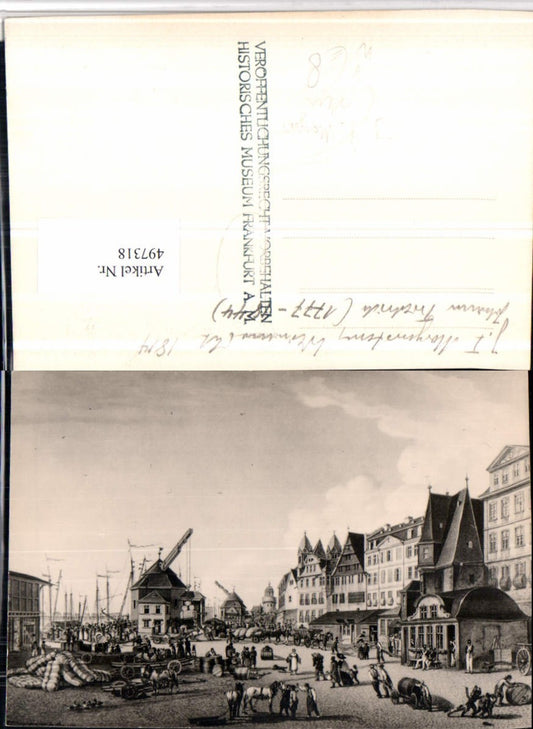 VERÖFFENTLICHUNGSRECHT VORBEHALTEN
HISTORISCHES MUSEUM FRANKFURT A. M.
Artikel Nr.
497318
J. F. Morgenstern, 1814
Johann Friedrich (1777-1844)